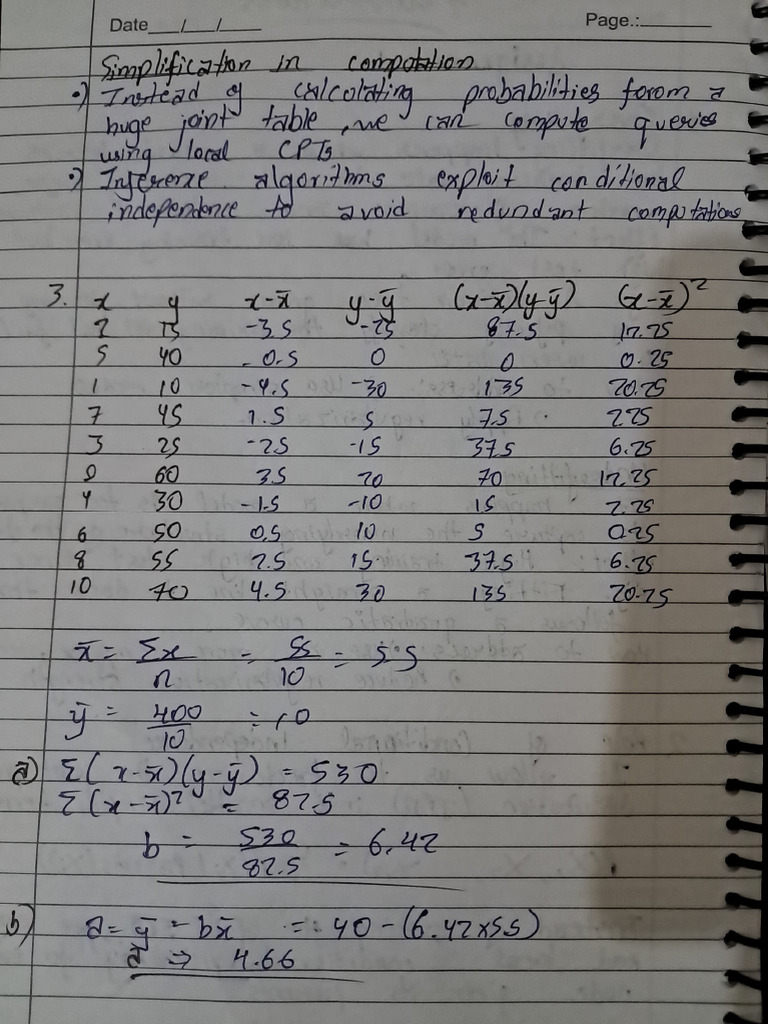 Date__/__/__ Page.:______
Simplification in computation
•) Instead of calculating probabilities forom a
huge joint table, we can compute queries
using local CPTs
•) Inference algorithms exploit conditional
independence to avoid redundant computations
3. x y x-x̄ y-ȳ (x-x̄)(y-ȳ) (x-x̄)²
2 15 -3.5 -25 87.5 12.25
5 40 -0.5 0 0 0.25
1 10 -4.5 -30 135 20.25
7 45 1.5 5 7.5 2.25
3 25 -2.5 -15 37.5 6.25
9 60 3.5 20 70 12.25
4 30 -1.5 -10 15 2.25
6 50 0.5 10 5 0.25
8 55 2.5 15 37.5 6.25
10 70 4.5 30 135 20.25
x̄ = Σx/n = 55/10 = 5.5
ȳ = 400/10 = 40
a) Σ(x-x̄)(y-ȳ) = 530
Σ(x-x̄)² = 82.5
b = 530/82.5 = 6.42
b) a = ȳ - bx̄ = 40 - (6.42×5.5)
a ⇒ 4.66